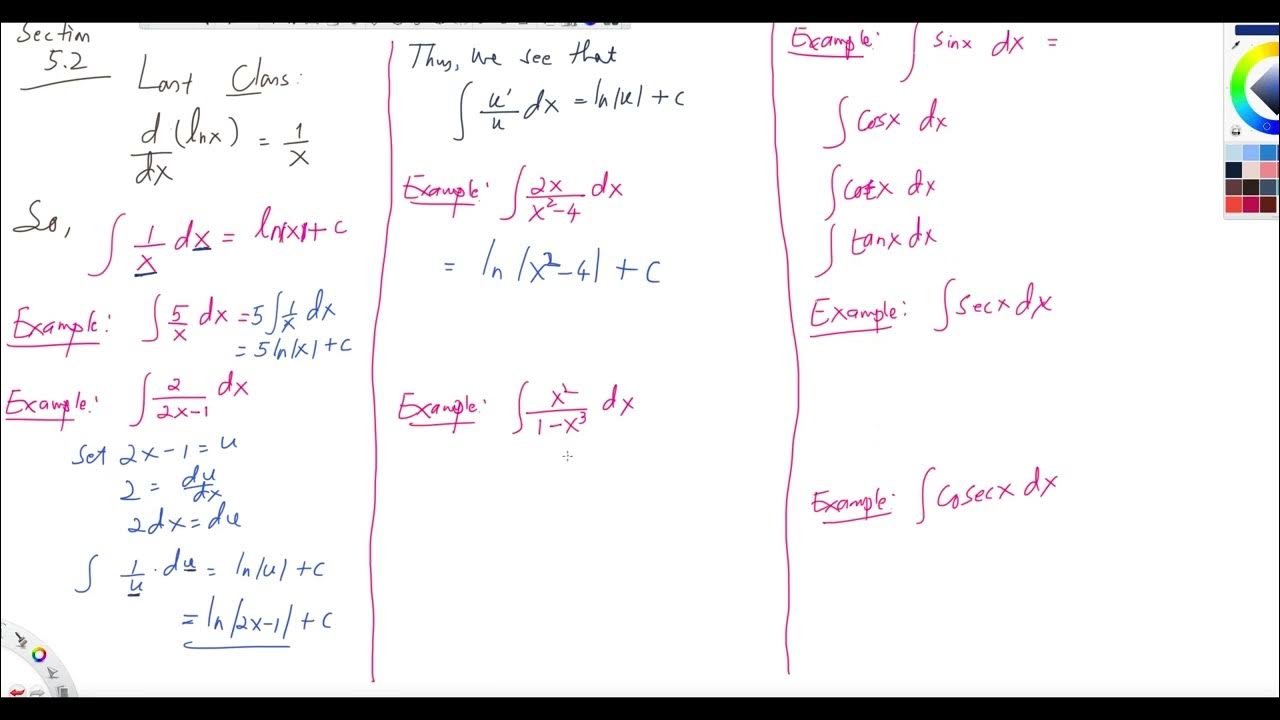 Section
5.2
Last Class:
d/dx (lnx) = 1/x
So,
∫ 1/x dx = ln|x| + c
Example: ∫ 5/x dx = 5∫ 1/x dx
= 5ln|x| + c
Example: ∫ 2/(2x-1) dx
Set 2x-1 = u
2 = du/dx
2dx = du
∫ 1/u · du = ln|u| + c
= ln|2x-1| + c
Thus, we see that
∫ u'/u dx = ln|u| + c
Example: ∫ 2x/(x²-4) dx
= ln |x²-4| + c
Example: ∫ x²/(1-x³) dx
Example: ∫ sinx dx =
∫ cosx dx
∫ cotx dx
∫ tanx dx
Example: ∫ secx dx
Example: ∫ cosecx dx